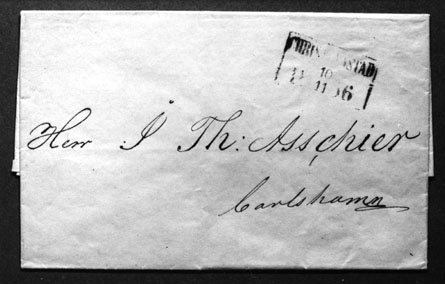 CHRISTIANSTAD
10
11
Herr J Th: Asschier
Carlshamn